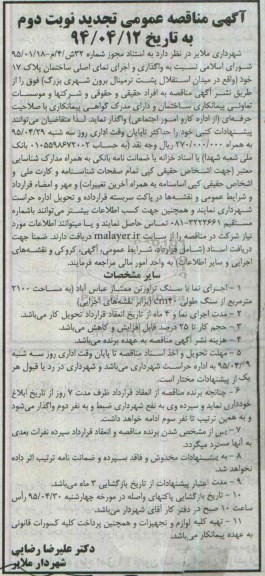 آگهی مناقصه عمومی تجدید نوبت دوم
به تاریخ ۹۴/۰۴/۱۲
شهرداری ملایر در نظر دارد به استناد مجوز شماره
شورای اسلامی نسبت به واگذاری و اجرای نمای اصلی ساختمان پلاک ۱۷
خود (واقع در میدان استقلال پشت ترمینال برون شهری بزرگ) فوق را از
طریق نشر آگهی مناقصه به افراد حقیقی و حقوقی و شرکتها و موسسات
تعاونی پیمانکاری ساختمان و دارای مدرک گواهی پیمانکاری یا صلاحیت
حرفه‌ای (از اداره کار و امور اجتماعی) واگذار نماید. لذا متقاضیان می‌توانند
پیشنهادات کتبی خود را حداکثر تا پایان وقت اداری روز سه شنبه ۹۵/۰۴/۲۹
به مبلغ ۲۷۰/۰۰۰/۰۰۰ ریال وجه نقد (به حساب ۰۱۰۵۵۹۸۶۷۲۰۰۲ بانک
ملی شعبه شهدا) یا اسناد خزانه یا ضمانت نامه بانکی به همراه مدارک شناسایی
معتبر (جهت اشخاص حقیقی کپی تمام صفحات شناسنامه و کارت ملی و
اشخاص حقوقی کپی اساسنامه به همراه آخرین تغییرات) و مهر و امضاء قرارداد
و شرایط عمومی و نقشه‌ها در پاکت سربسته قرارداده و تحویل اداره حراست
شهرداری نمایند و همچنین جهت کسب اطلاعات بیشتر می‌توانند باشماره
مستقیم ۳۲۲۲۶۶۱-۰۸۱ تماس حاصل نمایند و یا میتوانند اطلاعات مورد
نیاز شرکت در مناقصه را از سایت malayer.ir دریافت دارند. ضمنا جهت
دریافت اسناد (شامل قرارداد، شرایط عمومی، آگهی، کروکی و نقشه‌های
اجرایی و سایر اطلاعات) به واحد امور مالی مراجعه فرمایند.
سایر مشخصات
۱- اجرای نما با سنگ تراورتن ممتاز عباس آباد (به مساحت ۲۱۰۰
مترمربع از سنگ طولی cm۴۰ (برابر نقشه‌های اجرایی)
۲- مدت اجرای نما و ۴ ماه از تاریخ انعقاد قرارداد تحویل کار می‌باشد.
۳- حجم کار تا ۲۵ درصد قابل افزایش و کاهش می‌باشد.
۴- هزینه نشر آگهی مناقصه به عهده برنده می‌باشد.
۵- مهلت تحویل و اخذ اسناد مناقصه تا پایان وقت اداری روز سه شنبه
به اداره حراست شهرداری می‌باشد و شهرداری در رد یا قبول هر
یک از پیشنهادات مختار است.
۶- چنانچه برنده مناقصه از انعقاد قرارداد ظرف مدت ۷ روز از تاریخ ابلاغ
خودداری نماید و سپرده وی به نفع شهرداری ضبط و به نفر دوم واگذار می‌شود
و به همین ترتیب تا نفر سوم ادامه خواهد داشت.
۷- پس از مشخص شدن برنده مناقصه و انعقاد قرارداد سپرده نفرات بعدی
به آنها مسترد میگردد.
۸- به پیشنهادات مخدوش و فاقد سپرده و ضمانت نامه ترتیب اثر داده
نخواهد شد.
۹- مدت اعتبار پیشنهادات از تاریخ بازگشایی ۳ ماه می‌باشد.
۱۰- تاریخ بازگشایی پاکتهای واصله در مورخه چهارشنبه ۹۵/۰۴/۳۰ رأس
ساعت ۱۰ صبح در دفتر کار آقای شهردار می‌باشد.
۱۱- تهیه کلیه لوازم و تجهیزات و همچنین پرداخت کلیه کسورات قانونی
به عهده پیمانکار می‌باشد.
دکتر علیرضا رضایی
شهردار ملایر